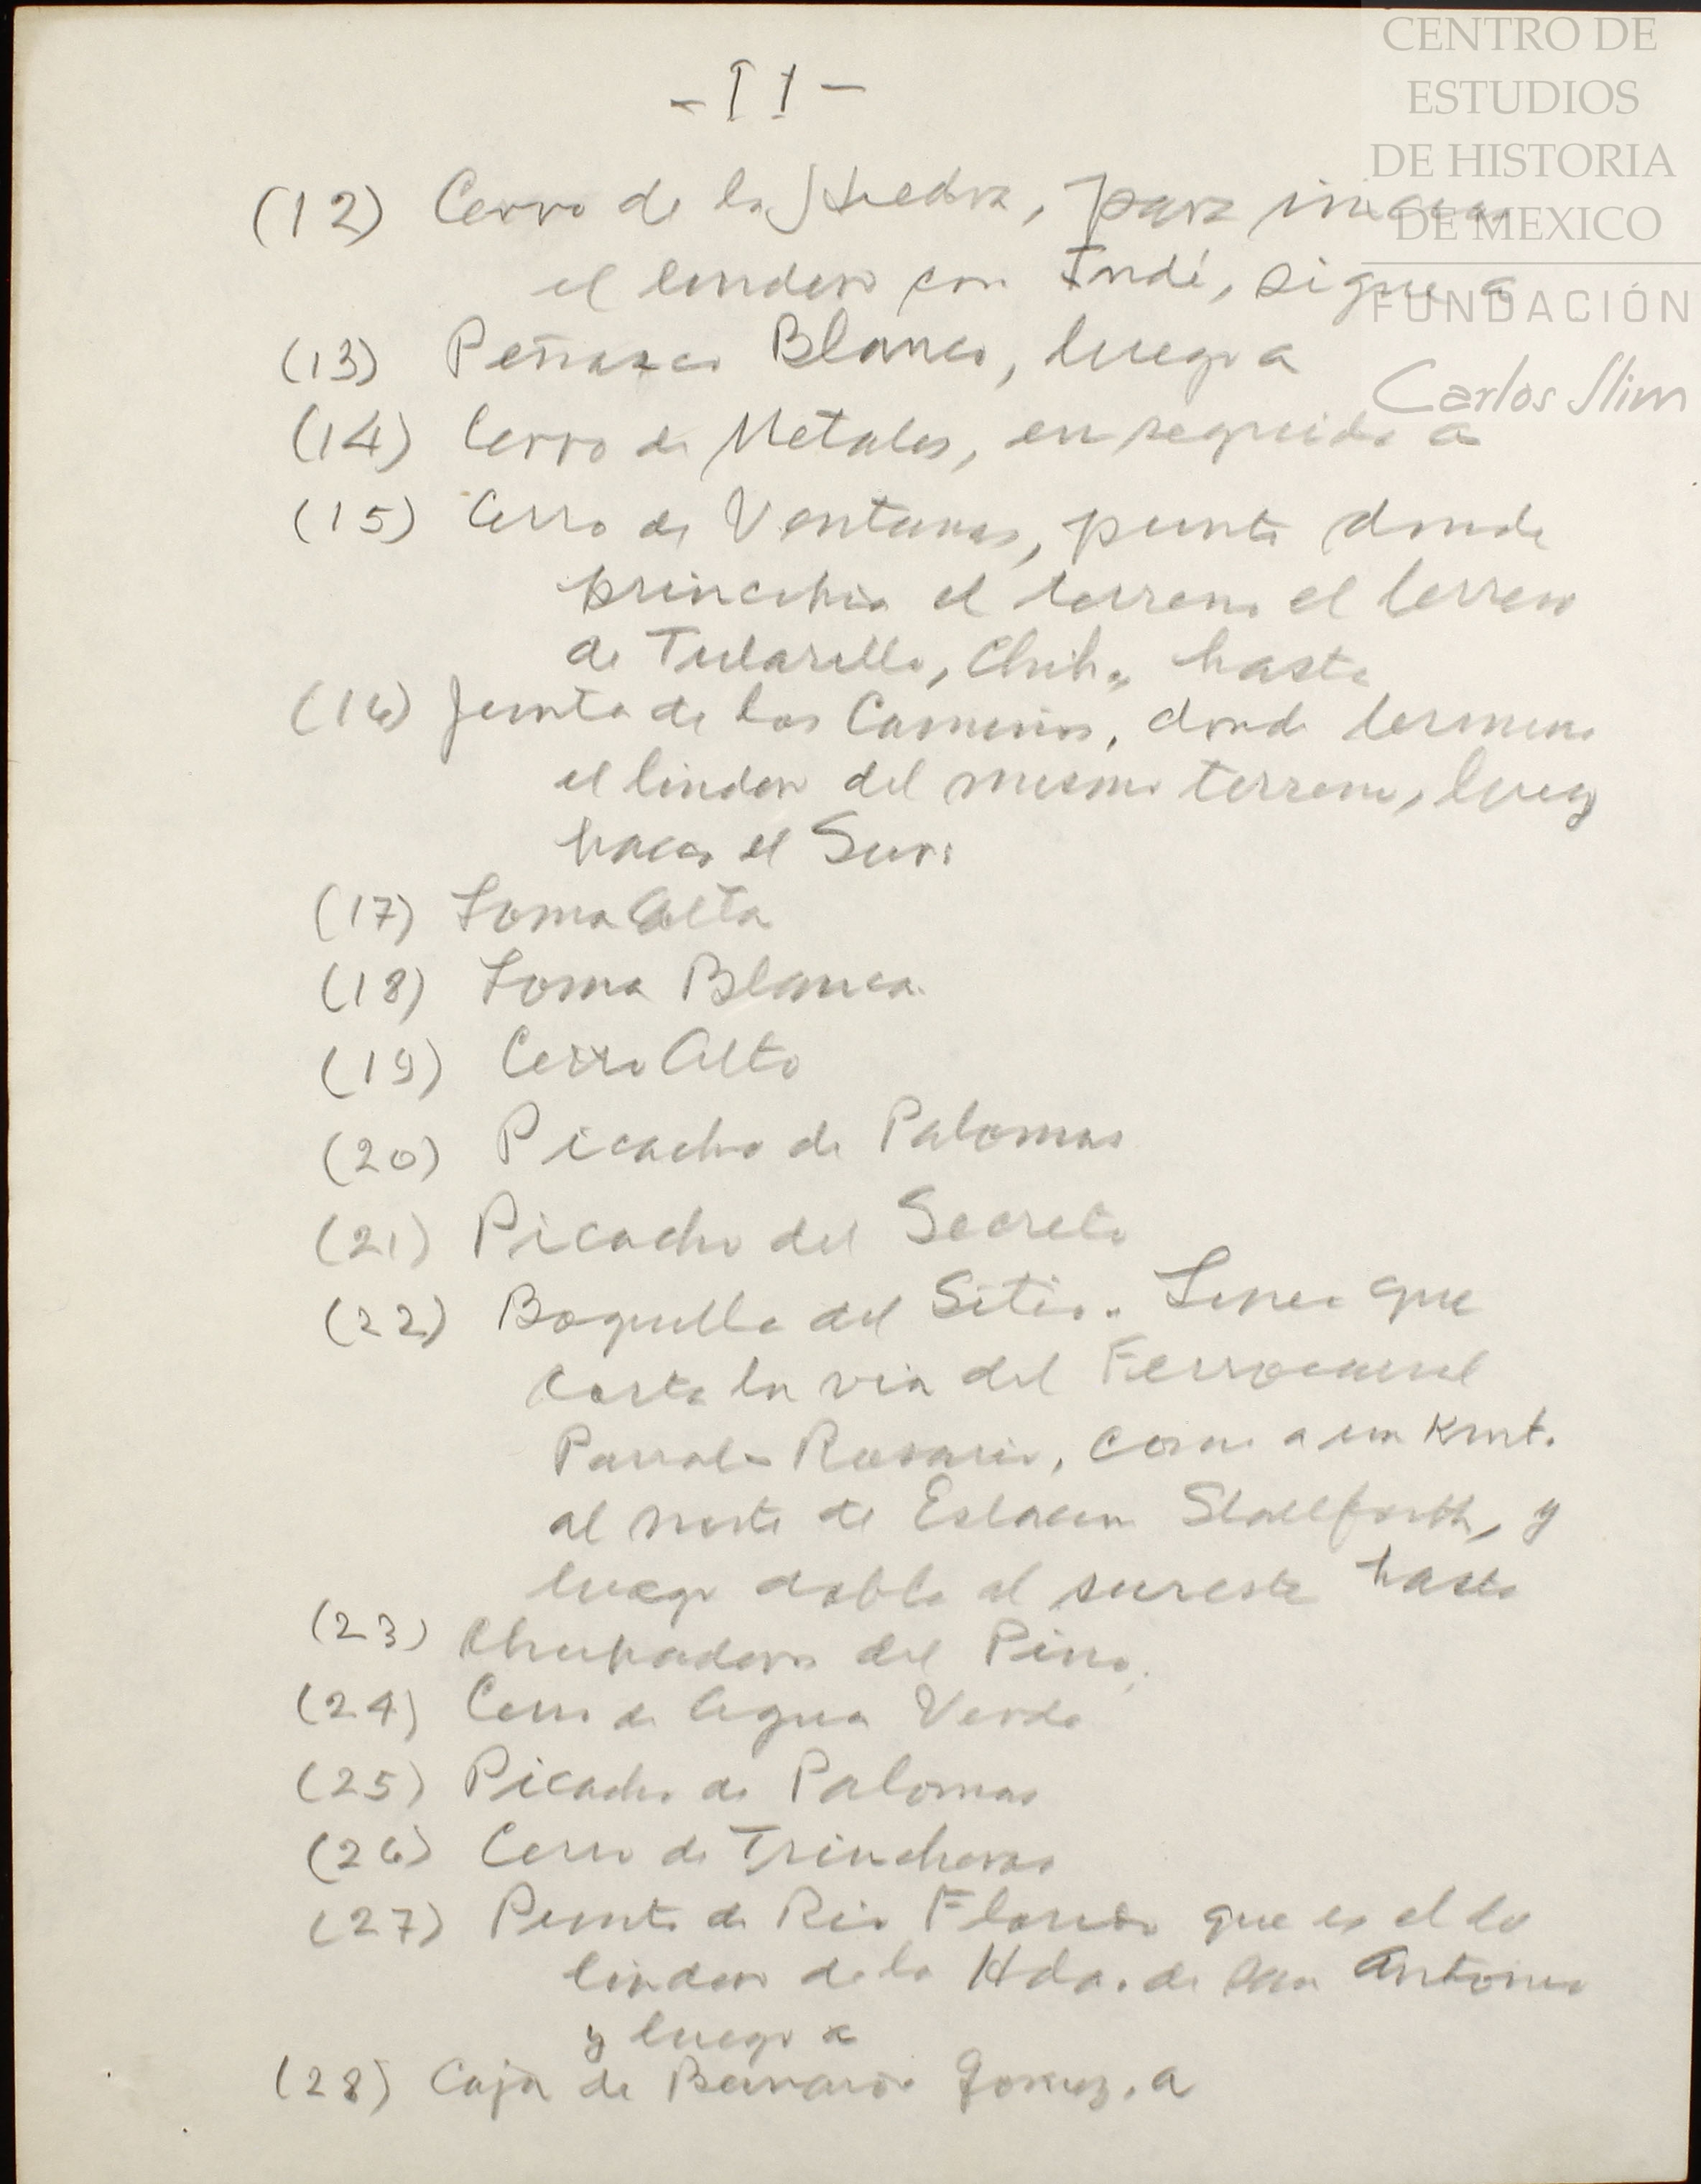 CENTRO DE
ESTUDIOS
DE HISTORIA
DE MEXICO
FUNDACIÓN
Carlos Slim
- II -
(12) Cerro de la Piedra, para
el lindero con Indé, sigue a
(13) Peñasco Blanco, luego a
(14) Cerro de Metales, en seguida a
(15) Cerro de Ventanas, punto donde
principia el terreno el terreno
de Tularillo, Chih., hasta
(16) Junta de los Caminos, donde termina
el lindero del mismo terreno, luego
hacia el Sur:
(17) Loma Alta
(18) Loma Blanca.
(19) Cerro Alto
(20) Picacho de Palomas
(21) Picacho del Secreto
(22) Boquilla del Sitio. Linea que
corta la via del Ferrocarril
Parral-Rosario, como a un Kmt.
al norte de Estacion Stallforth, y
luego dobla al sureste hasta
(23) Chupadero del Pino,
(24) Cerro de Agua Verde
(25) Picacho de Palomas
(26) Cerro de Trincheras
(27) Punto de Rio Florido que es el del
lindero de la Hda. de San Antonio
y luego a
(28) Caja de a